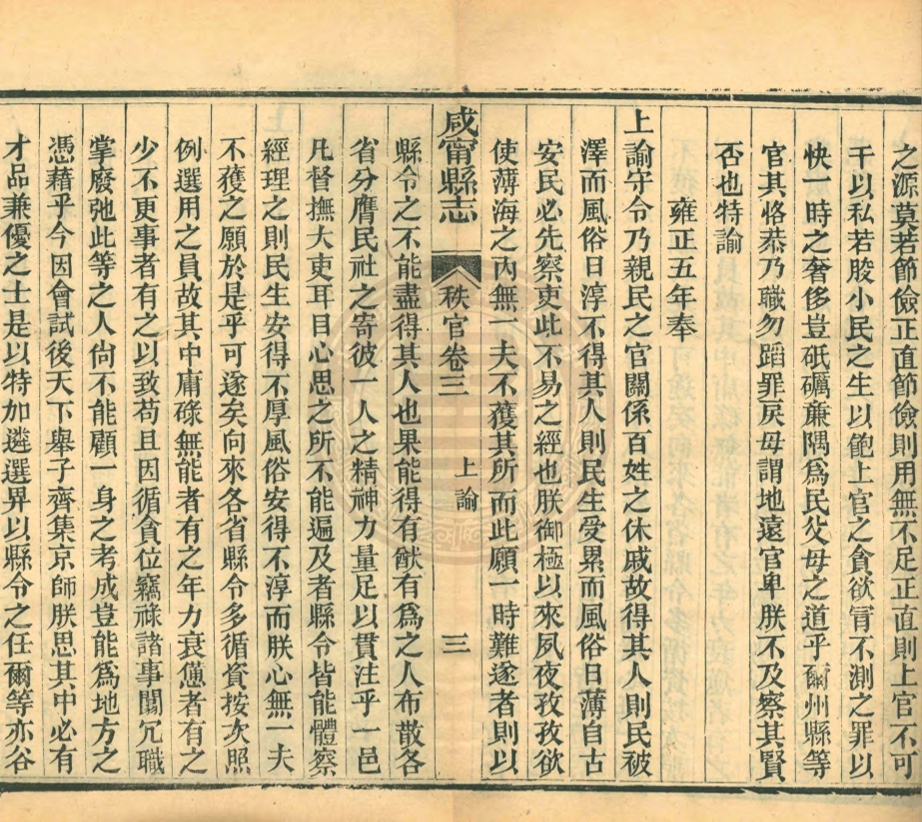 之源莫若節儉正直節儉則用無不足正直則上官不可
干以私若朘小民之生以飽上官之貪欲冐不測之罪以
快一時之奢侈豈砥礪亷隅爲民父母之道乎爾州縣等
官其恪恭乃職勿蹈罪戾毋謂地遠官卑朕不及察其賢
否也特諭
雍正五年奉
上諭守令乃親民之官關係百姓之休戚故得其人則民被
澤而風俗日淳不得其人則民生受累而風俗日薄自古
安民必先察吏此不易之經也朕御極以來夙夜孜孜欲
使薄海之內無一夫不獲其所而此願一時難遂者則以
咸甯縣志 秩官卷三 上諭 三
縣令之不能盡得其人也果能得有猷有爲之人布散各
省分膺民社之寄彼一人之精神力量足以貫注乎一邑
凡督撫大吏耳目心思之所不能遍及者縣令皆能體察
經理之則民生安得不厚風俗安得不淳而朕心無一夫
不獲之願於是乎可遂矣向來各省縣令多循資按次照
例選用之員故其中庸碌無能者有之年力衰憊者有之
少不更事者有之以致苟且因循貪位竊祿諸事闒冗職
掌廢弛此等之人尙不能顧一身之考成豈能爲地方之
憑藉乎今因會試後天下舉子齊集京師朕思其中必有
才品兼優之士是以特加遴選畀以縣令之任爾等亦谷